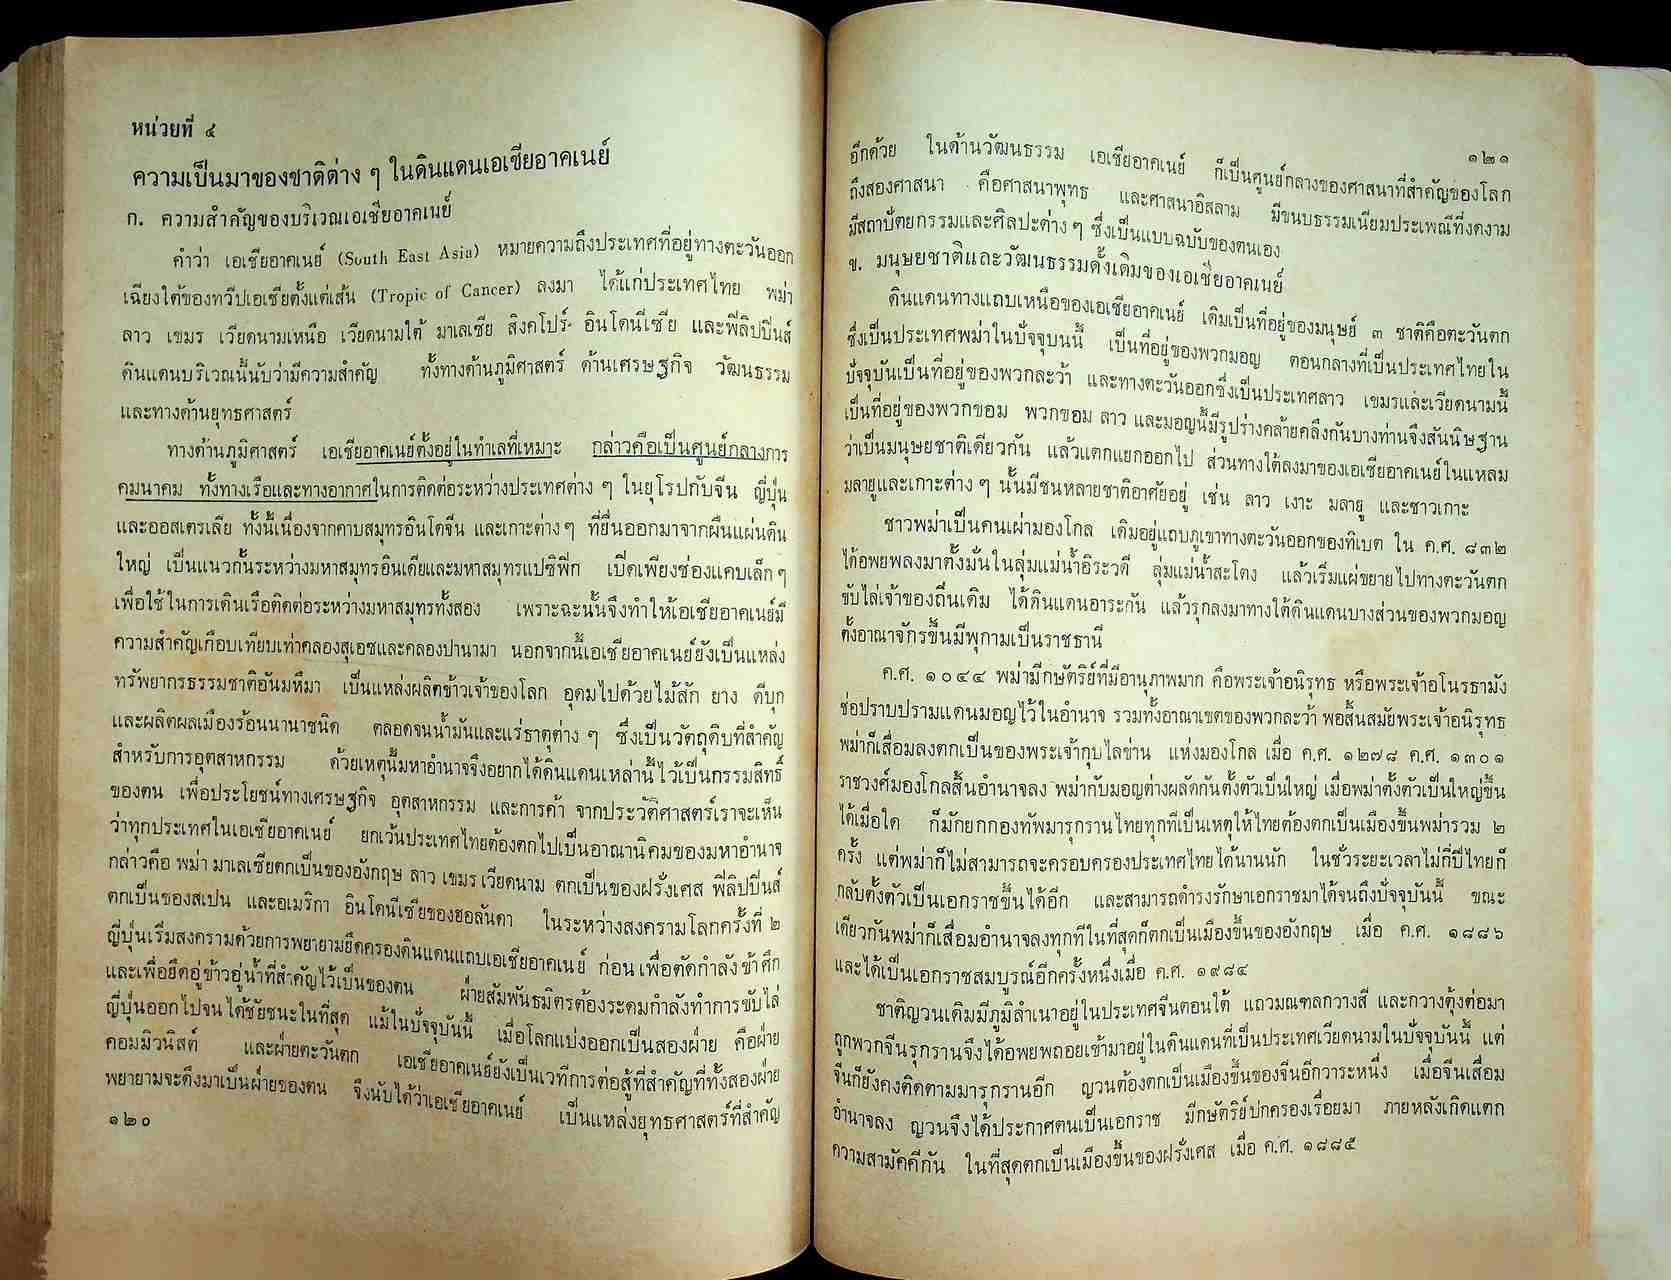 หน่วยที่ ๔
ความเป็นมาของชาติต่าง ๆ ในดินแดนเอเชียอาคเนย์
ก. ความสำคัญของบริเวณเอเชียอาคเนย์
คำว่า เอเชียอาคเนย์ (South East Asia) หมายความถึงประเทศที่อยู่ทางตะวันออก
เฉียงใต้ของทวีปเอเชียตั้งแต่เส้น (Tropic of Cancer) ลงมา ได้แก่ประเทศไทย พม่า
ลาว เขมร เวียดนามเหนือ เวียดนามใต้ มาเลเซีย สิงคโปร์ อินโดนีเซีย และฟีลิปปินส์
ดินแดนบริเวณนี้นับว่ามีความสำคัญ ทั้งทางด้านภูมิศาสตร์ ด้านเศรษฐกิจ วัฒนธรรม
และทางด้านยุทธศาสตร์
ทางด้านภูมิศาสตร์ เอเชียอาคเนย์ตั้งอยู่ในทำเลที่เหมาะ กล่าวคือเป็นศูนย์กลางการ
คมนาคม ทั้งทางเรือและทางอากาศในการติดต่อระหว่างประเทศต่าง ๆ ในยุโรปกับจีน ญี่ปุ่น
และออสเตรเลีย ทั้งนี้เนื่องจากคาบสมุทรอินโดจีน และเกาะต่างๆ ที่ยื่นออกมาจากผืนแผ่นดิน
ใหญ่ เป็นแนวกั้นระหว่างมหาสมุทรอินเดียและมหาสมุทรแปซิฟิก เปิดเพียงช่องแคบเล็กๆ
เพื่อใช้ในการเดินเรือติดต่อระหว่างมหาสมุทรทั้งสอง เพราะฉะนั้นจึงทำให้เอเชียอาคเนย์มี
ความสำคัญเกือบเทียบเท่าคลองสุเอซและคลองปานามา นอกจากนี้เอเชียอาคเนย์ยังเป็นแหล่ง
ทรัพยากรธรรมชาติอันมหึมา เป็นแหล่งผลิตข้าวเจ้าของโลก อุดมไปด้วยไม้สัก ยาง ดีบุก
และผลิตผลเมืองร้อนนานาชนิด ตลอดจนน้ำมันและแร่ธาตุต่าง ๆ ซึ่งเป็นวัตถุดิบที่สำคัญ
สำหรับการอุตสาหกรรม ด้วยเหตุนี้มหาอำนาจจึงอยากได้ดินแดนเหล่านี้ไว้เป็นกรรมสิทธิ์
ของตน เพื่อประโยชน์ทางเศรษฐกิจ อุตสาหกรรม และการค้า จากประวัติศาสตร์เราจะเห็น
ว่าทุกประเทศในเอเชียอาคเนย์ ยกเว้นประเทศไทยต้องตกไปเป็นอาณานิคมของมหาอำนาจ
กล่าวคือ พม่า มาเลเซียตกเป็นของอังกฤษ ลาว เขมร เวียดนาม ตกเป็นของฝรั่งเศส ฟีลิปปินส์
ตกเป็นของสเปน และอเมริกา อินโดนีเซียของฮอลันดา ในระหว่างสงครามโลกครั้งที่ ๒
ญี่ปุ่นเริ่มสงครามด้วยการพยายามยึดครองดินแดนแถบเอเชียอาคเนย์ ก่อน เพื่อตัดกำลังข้าศึก
และเพื่อยึดอู่ข้าวอู่น้ำที่สำคัญไว้เป็นของตน ฝ่ายสัมพันธมิตรต้องระดมกำลังทำการขับไล่
ญี่ปุ่นออกไปจนได้ชัยชนะในที่สุด แม้ในปัจจุบันนี้ เมื่อโลกแบ่งออกเป็นสองฝ่าย คือฝ่าย
คอมมิวนิสต์ และฝ่ายตะวันตก เอเชียอาคเนย์ยังเป็นเวทีการต่อสู้ที่สำคัญที่ทั้งสองฝ่าย
พยายามจะดึงมาเป็นฝ่ายของตน จึงนับได้ว่าเอเชียอาคเนย์ เป็นแหล่งยุทธศาสตร์ที่สำคัญ
๑๒๐
๑๒๑
อีกด้วย ในด้านวัฒนธรรม เอเชียอาคเนย์ ก็เป็นศูนย์กลางของศาสนาที่สำคัญของโลก
ถึงสองศาสนา คือศาสนาพุทธ และศาสนาอิสลาม มีขนบธรรมเนียมประเพณีที่งดงาม
มีสถาปัตยกรรมและศิลปะต่างๆ ซึ่งเป็นแบบฉบับของตนเอง
ข. มนุษยชาติและวัฒนธรรมดั้งเดิมของเอเชียอาคเนย์
ดินแดนทางแถบเหนือของเอเชียอาคเนย์ เดิมเป็นที่อยู่ของมนุษย์ ๓ ชาติคือตะวันตก
ซึ่งเป็นประเทศพม่าในปัจจุบนนี้ เป็นที่อยู่ของพวกมอญ ตอนกลางที่เป็นประเทศไทยใน
ปัจจุบันเป็นที่อยู่ของพวกละว้า และทางตะวันออกซึ่งเป็นประเทศลาว เขมรและเวียดนามนี้
เป็นที่อยู่ของพวกขอม พวกขอม ลาว และมอญนี้มีรูปร่างคล้ายคลึงกันบางท่านจึงสันนิษฐาน
ว่าเป็นมนุษยชาติเดียวกัน แล้วแตกแยกออกไป ส่วนทางใต้ลงมาของเอเชียอาคเนย์ในแหลม
มลายูและเกาะต่าง ๆ นั้นมีชนหลายชาติอาศัยอยู่ เช่น ลาว เงาะ มลายู และชาวเกาะ
ชาวพม่าเป็นคนเผ่ามองโกล เดิมอยู่แถบภูเขาทางตะวันออกของทิเบต ใน ค.ศ. ๘๓๒
ได้อพยพลงมาตั้งมั่นในลุ่มแม่น้ำอิระวดี ลุ่มแม่น้ำสะโตง แล้วเริ่มแผ่ขยายไปทางตะวันตก
ขับไล่เจ้าของถิ่นเดิม ได้ดินแดนอาระกัน แล้วรุกลงมาทางใต้ดินแดนบางส่วนของพวกมอญ
ตั้งอาณาจักรขึ้นมีพุกามเป็นราชธานี
ค.ศ. ๑๐๔๔ พม่ามีกษัตริย์ที่มีอานุภาพมาก คือพระเจ้าอนิรุทธ หรือพระเจ้าอโนรธามัง
ช่อปราบปรามแดนมอญไว้ในอำนาจ รวมทั้งอาณาเขตของพวกละว้า พอสิ้นสมัยพระเจ้าอนิรุทธ
พม่าก็เสื่อมลงตกเป็นของพระเจ้ากุบไลข่าน แห่งมองโกล เมื่อ ค.ศ. ๑๒๗๘ ค.ศ. ๑๓๐๑
ราชวงศ์มองโกลสิ้นอำนาจลง พม่ากับมอญต่างผลัดกันตั้งตัวเป็นใหญ่ เมื่อพม่าตั้งตัวเป็นใหญ่ขึ้น
ได้เมื่อใด ก็มักยกกองทัพมารุกรานไทยทุกทีเป็นเหตุให้ไทยต้องตกเป็นเมืองขึ้นพม่ารวม ๒
ครั้ง แต่พม่าก็ไม่สามารถจะครอบครองประเทศไทยได้นานนัก ในชั่วระยะเวลาไม่กี่ปีไทยก็
กลับตั้งตัวเป็นเอกราชขึ้นได้อีก และสามารถดำรงรักษาเอกราชมาได้จนถึงปัจจุบันนี้ ขณะ
เดียวกันพม่าก็เสื่อมอำนาจลงทุกทีในที่สุดก็ตกเป็นเมืองขึ้นของอังกฤษ เมื่อ ค.ศ. ๑๘๘๖
และได้เป็นเอกราชสมบูรณ์อีกครั้งหนึ่งเมื่อ ค.ศ. ๑๙๘๔
ชาติญวนเดิมมีภูมิลำเนาอยู่ในประเทศจีนตอนใต้ แถวมณฑลกวางสี และกวางตุ้งต่อมา
ถูกพวกจีนรุกรานจึงได้อพยพถอยเข้ามาอยู่ในดินแดนที่เป็นประเทศเวียดนามในปัจจุบันนี้ แต่
จีนก็ยังคงติดตามมารุกรานอีก ญวนต้องตกเป็นเมืองขึ้นของจีนอีกวาระหนึ่ง เมื่อจีนเสื่อม
อำนาจลง ญวนจึงได้ประกาศตนเป็นเอกราช มีกษัตริย์ปกครองเรื่อยมา ภายหลังเกิดแตก
ความสามัคคีกัน ในที่สุดตกเป็นเมืองขึ้นของฝรั่งเศส เมื่อ ค.ศ. ๑๘๘๕